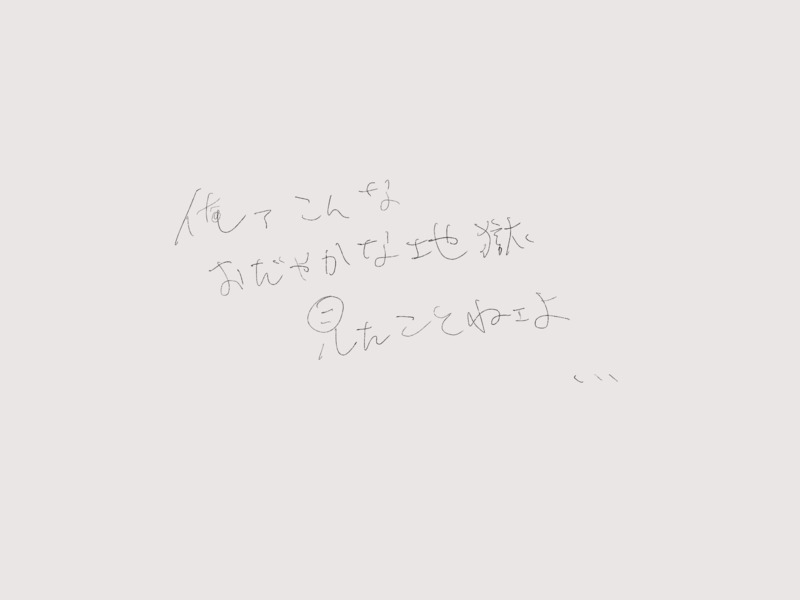 俺ァこんな
おだやかな地獄
見たことねェよ
...